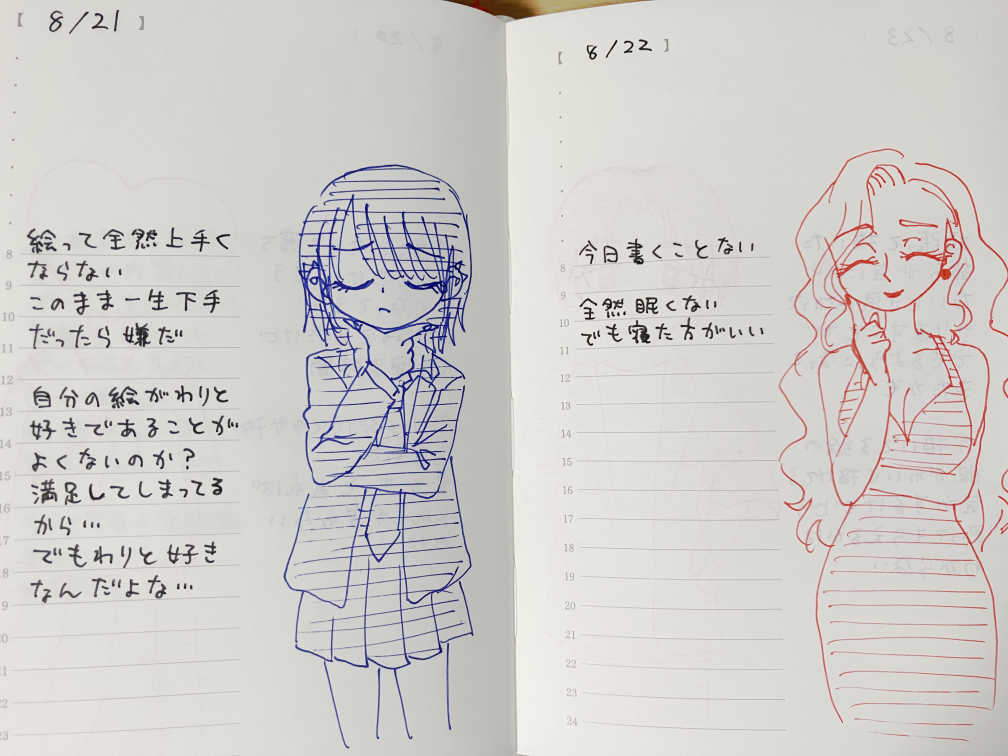 【 8/21 】
絵って全然上手く
ならない
このまま一生下手
だったら嫌だ
自分の絵がわりと
好きであることが
よくないのか?
満足してしまってる
から…
でもわりと好き
なんだよな…
8
9
10
11
12
13
14
15
16
17
18
19
20
21
22
23
【 8/22 】
今日書くことない
全然眠くない
でも寝た方がいい
8
9
10
11
12
13
14
15
16
17
18
19
20
21
22
23
24